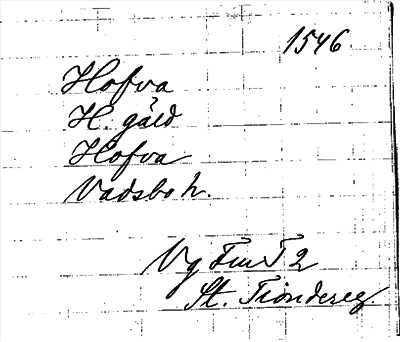 1546.
Hofva
H. gäld
Hofva
Vadsbo h.
Vg Fm T 2
St. Tiondereg.